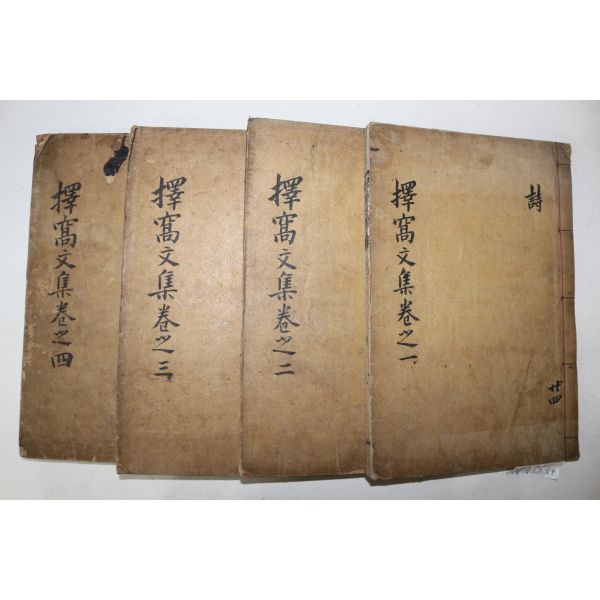 詩
廿四
擇窩文集卷之一
擇窩文集卷之二
擇窩文集卷之三
擇窩文集卷之四